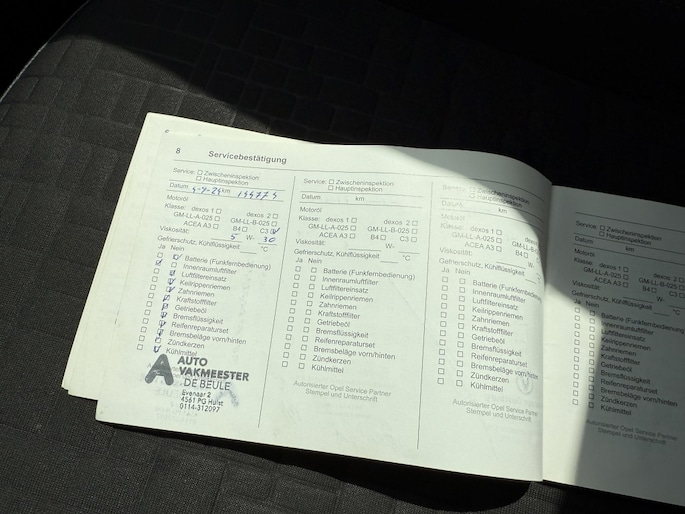 8 Servicebestätigung
Service: Zwischeninspektion
Hauptinspektion
Datum km
Motoröl
Klasse: dexos 1 dexos 2
GM-LL-A-025 GM-LL-B-025
ACEA A3 B4 C3
Viskosität: 5 W- 30 °C
Gefrierschutz, Kühlflüssigkeit
Ja Nein
Batterie (Funkfernbedienung)
Innenraumluftfilter
Luftfiltereinsatz
Keilrippenriemen
Zahnriemen
Kraftstofffilter
Getriebeöl
Bremsflüssigkeit
Reifenreparaturset
Bremsbeläge vorn/hinten
Zündkerzen
Kühlmittel
AUTO
VAKMEESTER
DE BEULE
Evenaar 2
4561 PG Hulst
0114-312097
Service: Zwischeninspektion
Hauptinspektion
Datum km
Motoröl
Klasse: dexos 1 dexos 2
GM-LL-A-025 GM-LL-B-025
ACEA A3 B4 C3
Viskosität: W-
Gefrierschutz, Kühlflüssigkeit °C
Ja Nein
Batterie (Funkfernbedienung)
Innenraumluftfilter
Luftfiltereinsatz
Keilrippenriemen
Zahnriemen
Kraftstofffilter
Getriebeöl
Bremsflüssigkeit
Reifenreparaturset
Bremsbeläge vorn/hinten
Zündkerzen
Kühlmittel
Autorisierter Opel Service Partner
Stempel und Unterschrift
Service: Zwischeninspektion
Hauptinspektion
Datum km
Motoröl
Klasse: dexos 1 dexos 2
GM-LL-A-025
ACEA A3 B4
Viskosität: W-
Gefrierschutz, Kühlflüssigkeit
Ja Nein
Batterie (Funkfernbedienung)
Innenraumluftfilter
Luftfiltereinsatz
Keilrippenriemen
Zahnriemen
Kraftstofffilter
Getriebeöl
Bremsflüssigkeit
Reifenreparaturset
Bremsbeläge vorn/hinten
Zündkerzen
Kühlmittel
Autorisierter Opel Service Partner
Stempel und Unterschrift
Service: Zwischeninspektion
Hauptinspektion
Datum km
Motoröl
Klasse: dexos 1 dexos 2
GM-LL-A-025
ACEA A3 B4
Viskosität: W-
Gefrierschutz, Kühlflüssigkeit
Ja Nein
Batterie (Funkfernbedienung)
Innenraumluftfilter
Luftfiltereinsatz
Keilrippenriemen
Zahnriemen
Kraftstofffilter
Getriebeöl
Bremsflüssigkeit
Reifenreparaturset
Bremsbeläge vorn/hinten
Zündkerzen
Kühlmittel
Autorisierter Opel Service Partner
Stempel und Unterschrift